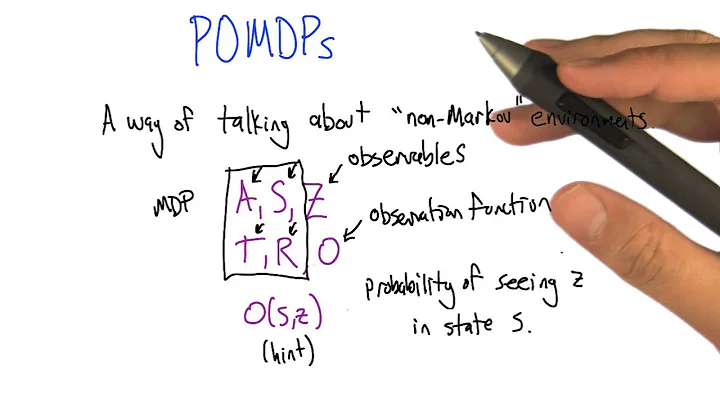 POMDPs
A way of talking about "non-Markov" environments.
observables
MDP
A, S, Z
observation function
T, R O
probability of seeing z
O(s,z)
in state s.
(hint)